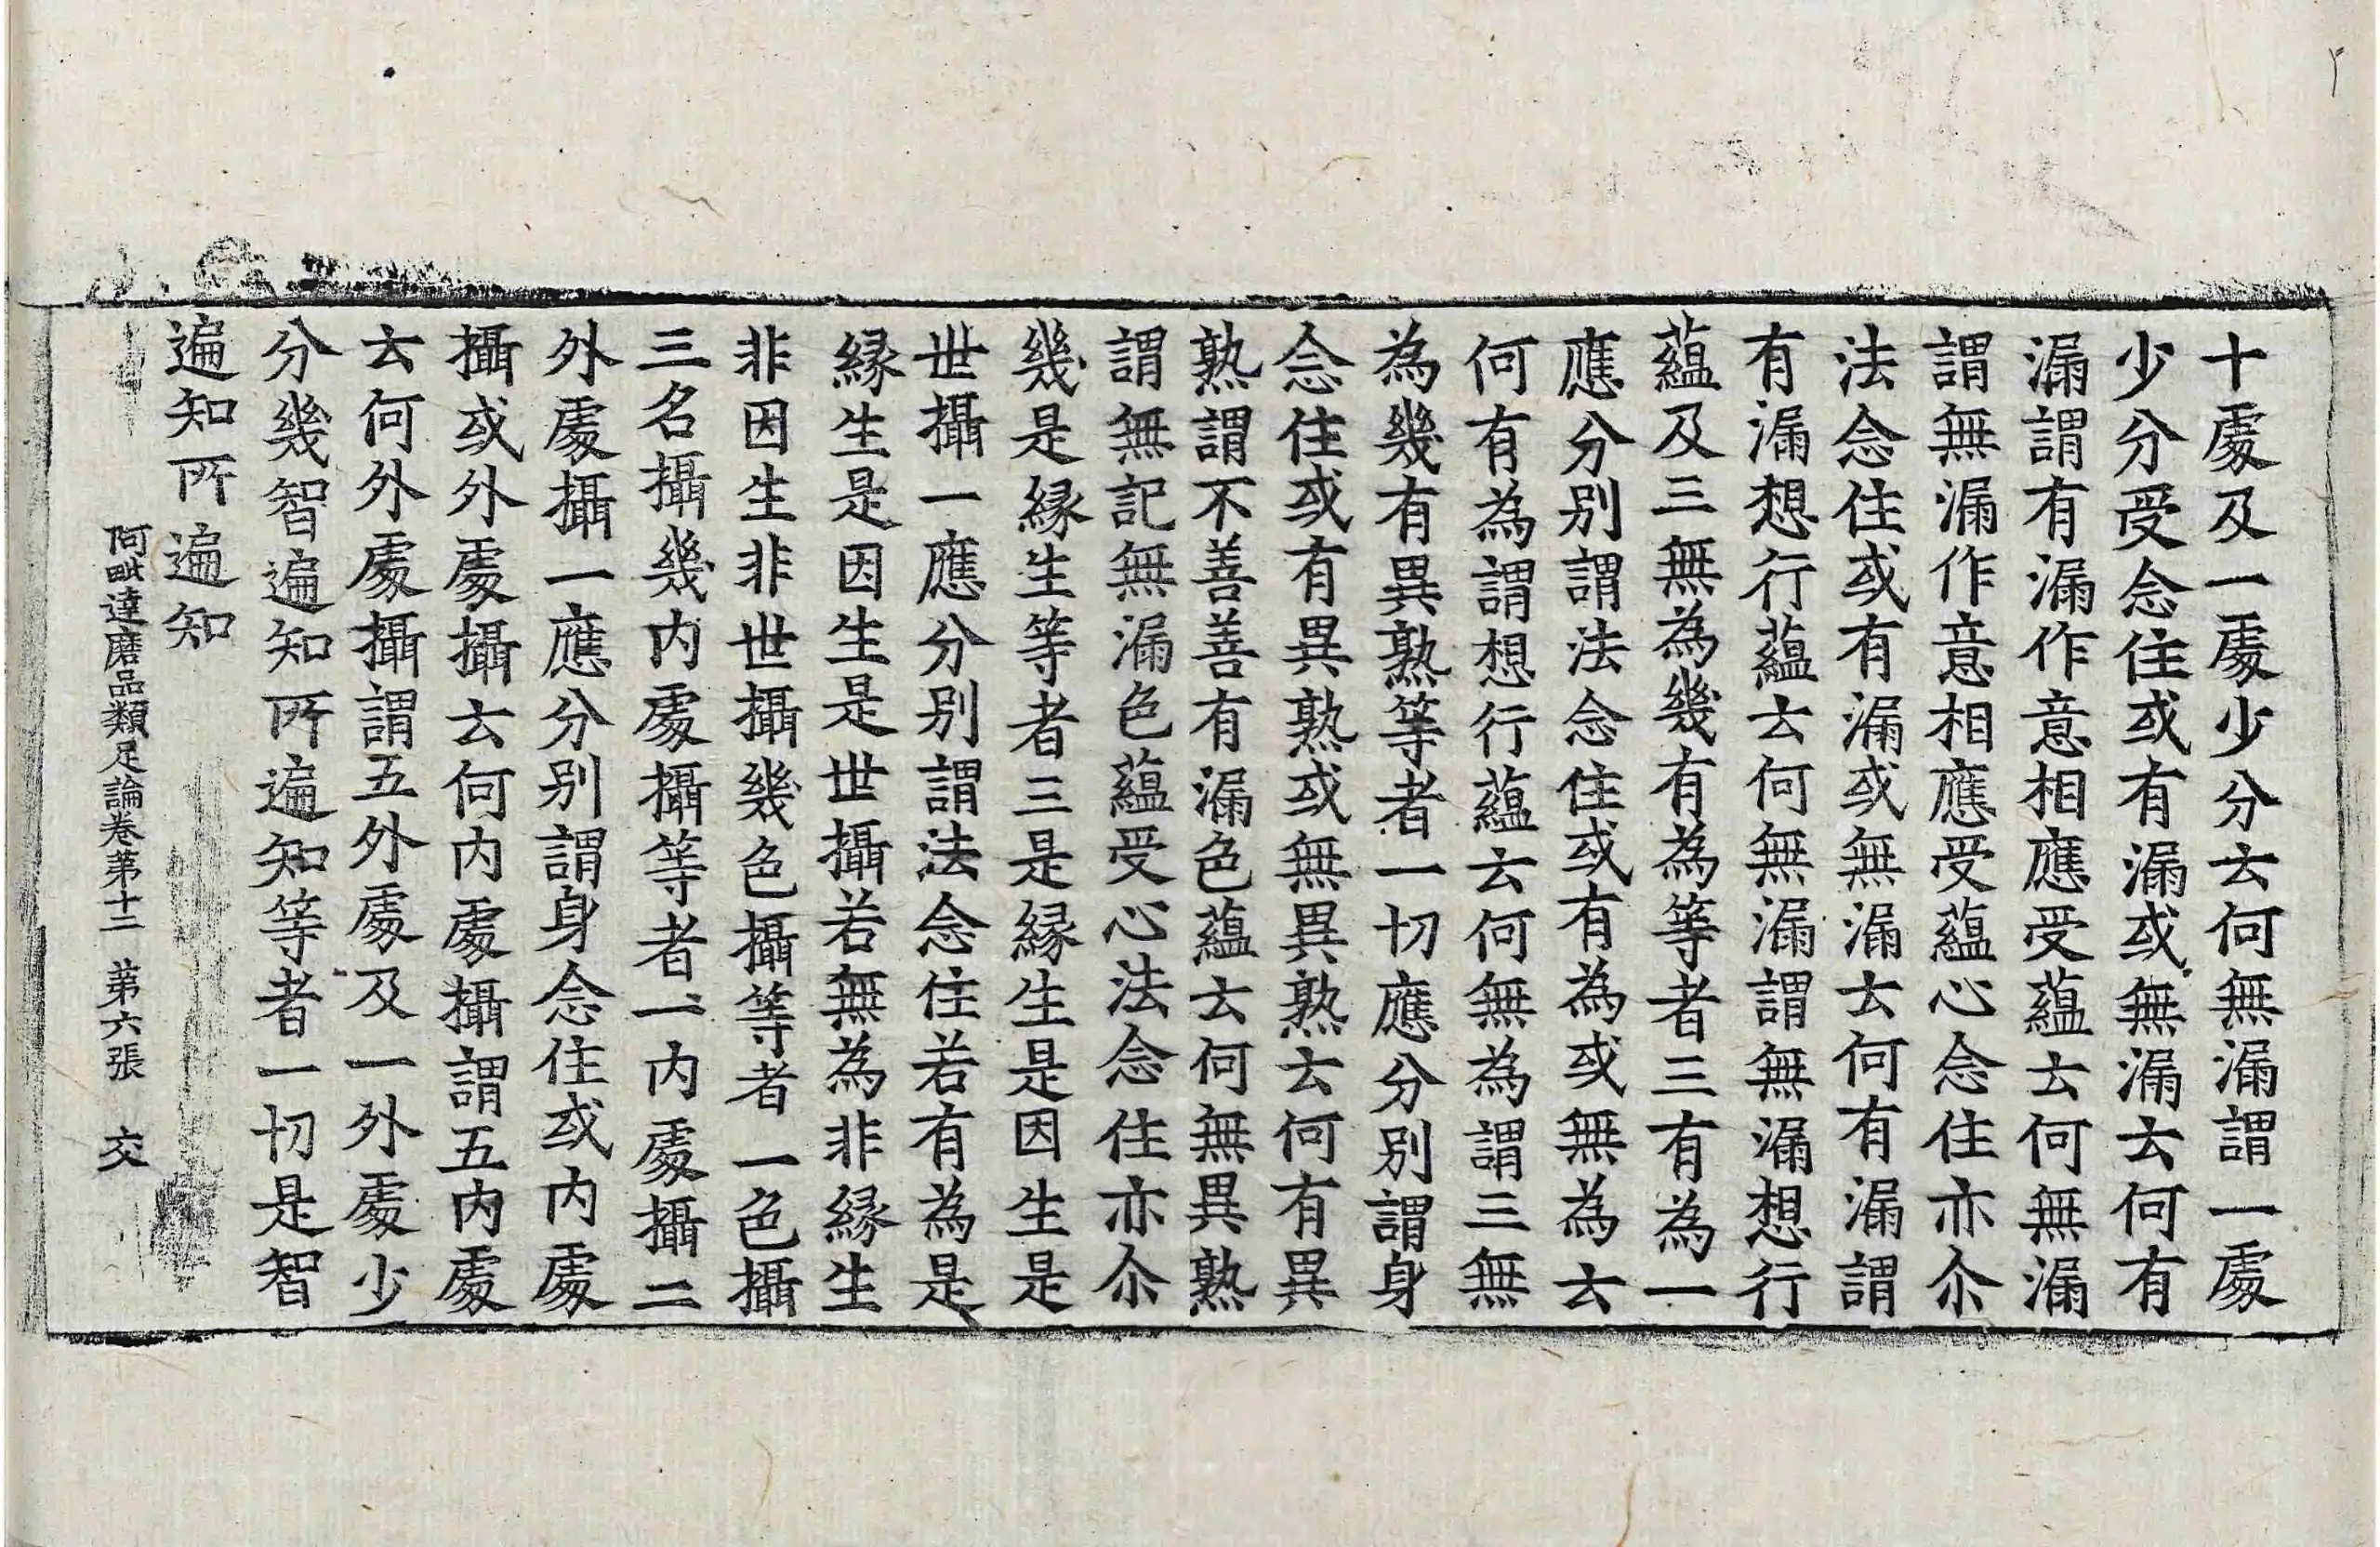 十處及一處少分云何無漏謂一處
少分受念住或有漏或無漏云何有
漏謂有漏作意相應受蘊云何無漏
謂無漏作意相應受蘊心念住亦尒
法念住或有漏或無漏云何有漏謂
有漏想行蘊云何無漏謂無漏想行
蘊及三無為幾有為等者三有為一
應分別謂法念住或有為或無為云
何有為謂想行蘊云何無為謂三無
為幾有異熟等者一切應分別謂身
念住或有異熟或無異熟云何有異
熟謂不善善有漏色蘊云何無異熟
謂無記無漏色蘊受心法念住亦尒
幾是縁生等者三是縁生是因生是
世攝一應分別謂法念住若有為是
縁生是因生是世攝若無為非縁生
非因生非世攝幾色攝等者一色攝
三名攝幾内處攝等者一内處攝二
外處攝一應分別謂身念住或内處
攝或外處攝云何内處攝謂五内處
云何外處攝謂五外處及一外處少
分幾智遍知所遍知等者一切是智
遍知所遍知
阿毗達磨品類足論卷第十二 第六張 交